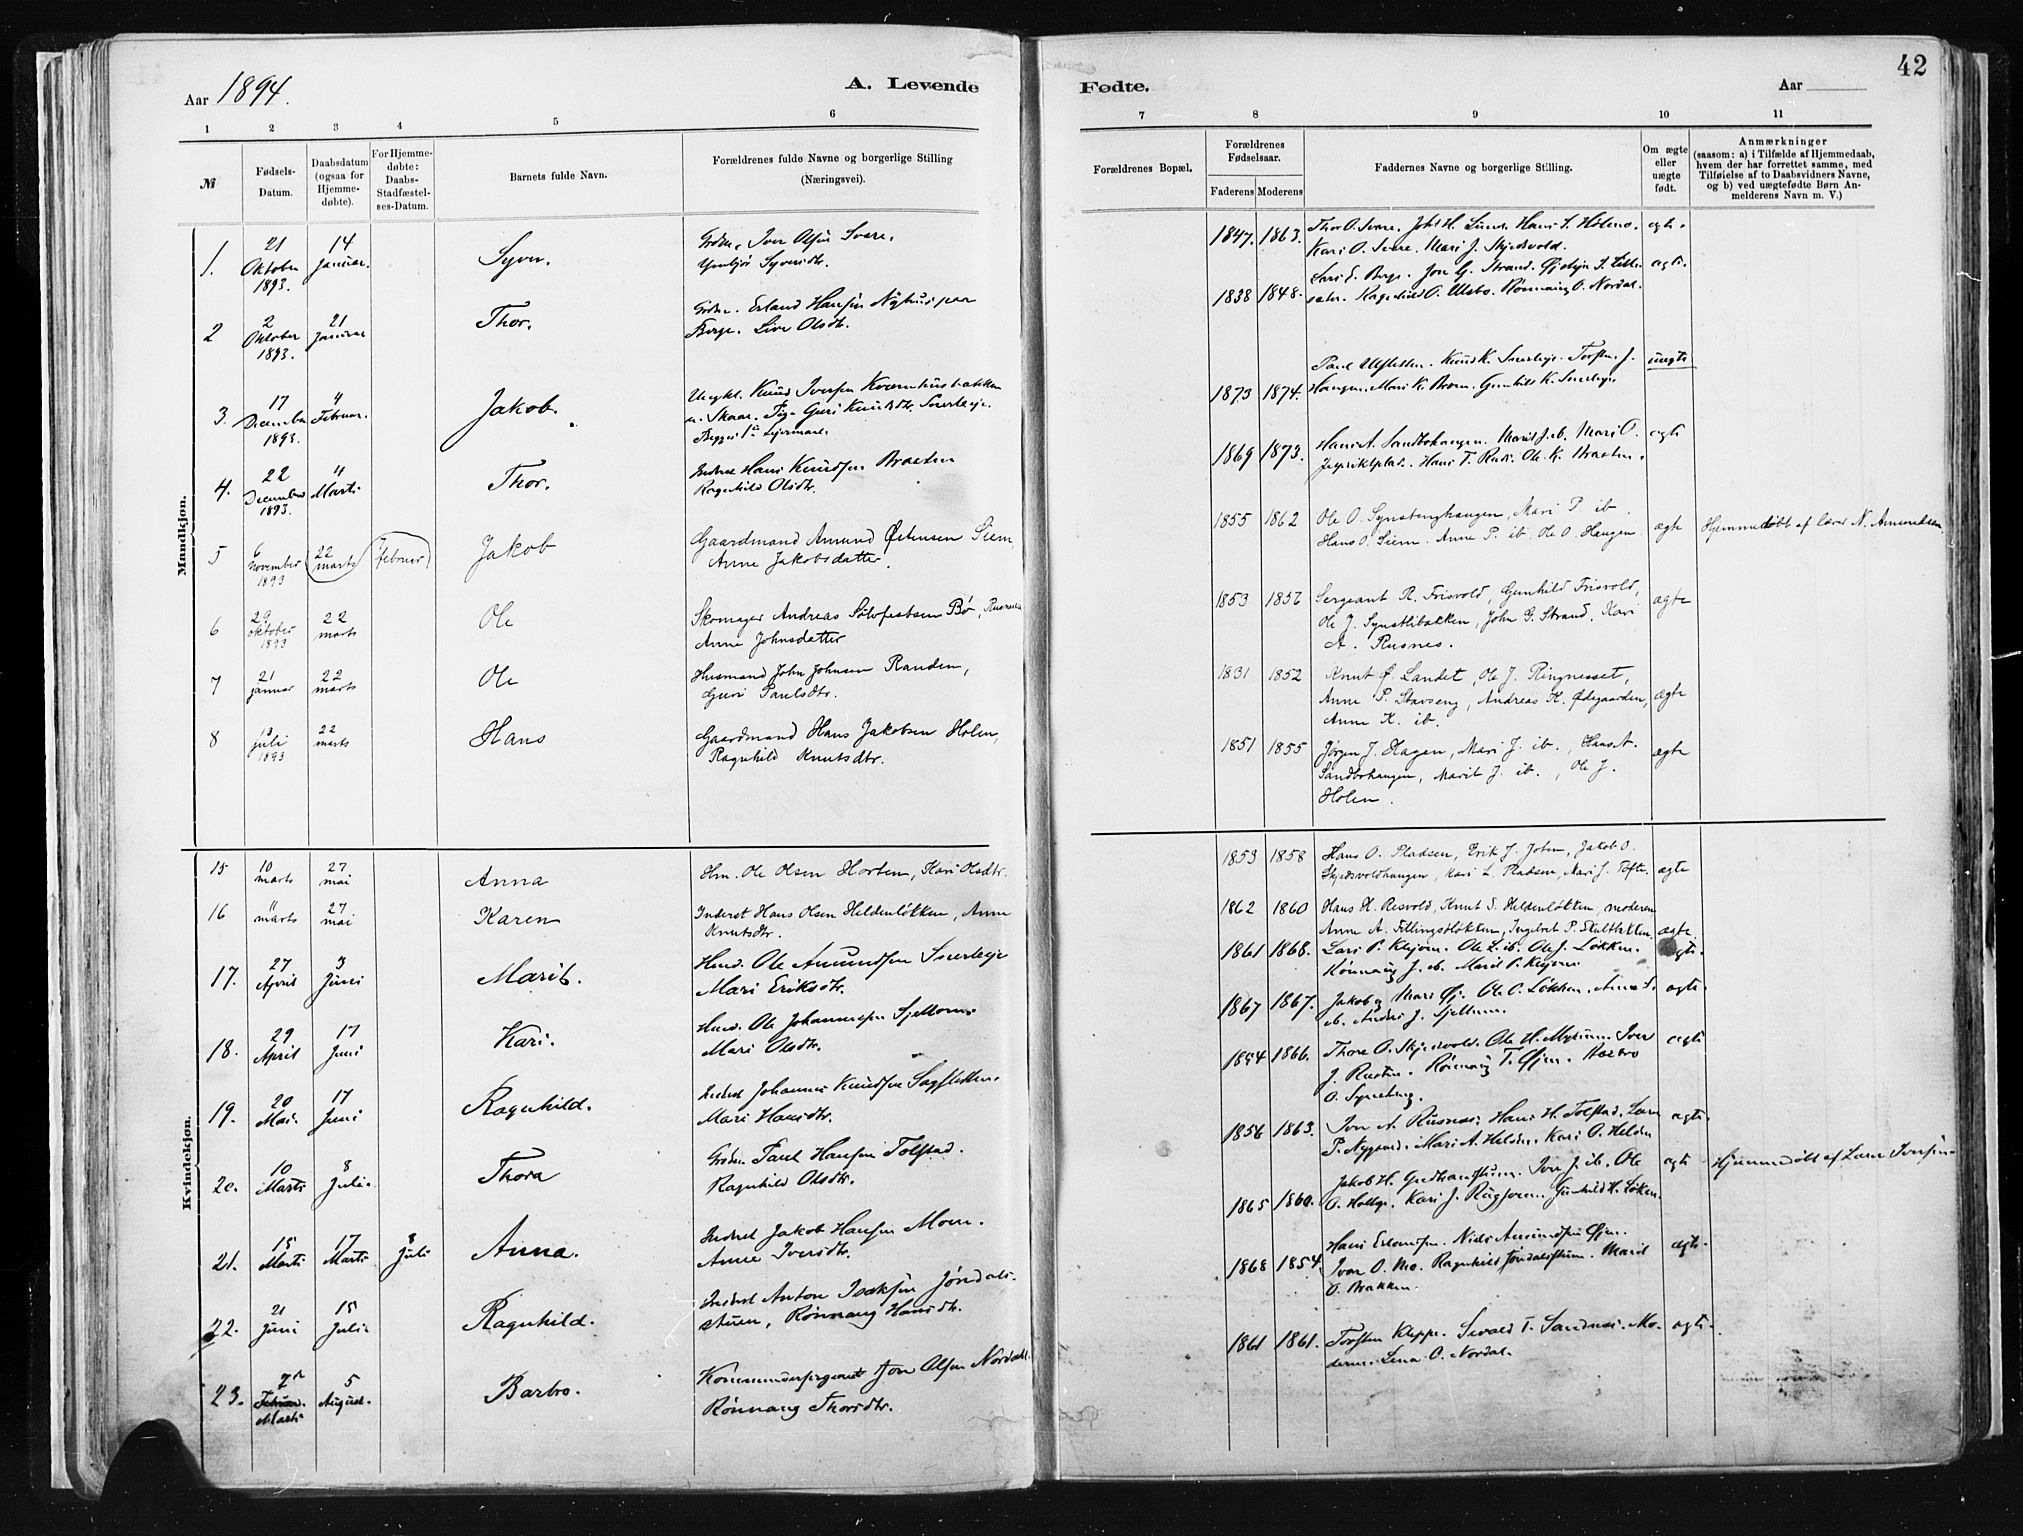 Aar 1894.
A. Levende
Fødte.
Aar
42
1
2
3
4
5
6
7
8
9
10
11
№
Fødsels-
Datum.
Daabsdatum
(ogsaa for
Hjemme-
døbte).
For Hjemme-
døbte:
Daabs-
Stadfæstel-
ses-Datum.
Barnets fulde Navn.
Forældrenes fulde Navne og borgerlige Stilling
(Næringsvei).
Forældrenes Bopæl.
Forældrenes
Fødselsaar.
Faderens
Moderens
Faddernes Navne og borgerlige Stilling.
Om ægte
eller
uægte
født.
Anmærkninger
(saasom: a) i Tilfælde af Hjemmedaab,
hvem der har forrettet samme, med
Tilføielse af to Daabsvidners Navne,
og b) ved uægtefødte Børn An-
melderens Navn m. V.)
Mandkjøn.
1.
21
Oktober
1893.
14
Januar.
Syver.
Iver Olsen Svare.
Syversdtr.
1847. 1863.
Thor O. Svare. Hans S. Holmo.
Kari O. Svare. Mari J. Skjedsvold.
ægte.
2
2
Oktober
1893.
21
Januar
Thor.
Erland Hansen Nyhus paa
Berge. Live Olsdtr.
1838 1848.
Lars E. Berge. Jon G. Strand.
Ragnhild O. Ulsbo. Rønnaug O. Nordal.
ægte.
3.
17
December
1893.
4
Februar.
Jakob.
Ungkl. Knud Iversen
Skaar. Pige Guri Knudsdtr.
Begges 1ste Leiermaal.
1873 1874.
Paul Ulfsletten. Knud K.
Haugen. Mari K. Gunhild K.
uægte
4.
22
December
1893.
4
Marts
Thor.
Inderst Hans Knudsen Braaten
Ragnhild Olsdtr.
1869 1873.
Hans A. Sandbohaugen. Marit J. ib. Mari O.
Hans T. Rusn. Ole K. Braaten.
ægte
5
6
november
1893
22
marts
7
februar
Jakob
Gaardmand Amund Østensen Siem,
Anne Jakobsdatter.
1855 1862
Ole O. Synstenghaugen, Mari P. ib.
Hans O. Siem. Anne P. ib. Ole O. Haugen
ægte
Hjemmedøbt af lærer N. Amundsen
6
29
oktober
1893
22
marts
Ole
Skomager Andreas Sølvfestsen Bø, Rusnes
Anne Johnsdatter
1853 1856
Sergeant R. Frisvold, Gunhild Frisvold,
Ole J. Synstlibakken, John G. Strand, Kari
A. Rusnes.
ægte
7
21
januar
22
marts
Ole
Husmand John Johnsen Randen,
Guri Paulsdtr.
1831 1852
Knut Ø. Landet, Ole J. Ringnesset,
Anne P. Stavseng, Andreas K. Ødegaarden,
Anne K. ib.
ægte
8
13
juli
1893
22
marts
Hans
Gaardmand Hans Jakobsen Holen,
Ragnhild Knutsdtr.
1851 1855
Jørgen J. Hagen, Mari J. ib., Hans A.
Sandbohaugen, Marit J. ib., Ole J.
Holen.
ægte
Kvindekjøn.
15
10
marts
27
mai
Anna
Hm. Ole Olsen Horten, Kari Olsdtr.
1853 1858
Hans O. Pladsen, Erik J. Joten, Jakob O.
Skjedsvoldhaugen, Kari L. Pladsen, Mari J. Tofte.
ægte
16
11
marts
27
mai
Karen
Inderst Hans Olsen Heldenløkken, Anne
Knutsdtr.
1862 1860
Hans H. Resvold, Knut S. Heldenløkken, moderen
Anne A. Fillingsløkken, Ingebret P. Skultbakken.
ægte.
17.
27
April
3
Juni
Marit.
Husm. Ole Amundsen
Mari Eriksdtr.
1861 1868.
Lars P. Klejorn. Ole L. ib. Ole J. Løkken.
Rønnaug J. ib. Marit P. Klejorn
ægte.
18.
29
April
17
Juni
Kari.
Husm. Ole Johannesen Sjellom.
Mari Olsdtr.
1867 1867.
Jakob og Mari Øj. Ole O. Løkken. Anne S.
ib. Anders J. Sjellum.
ægte.
19.
20
Mai.
17
Juni
Ragnhild.
Inderst Johannes Knudsen Sagfletten.
Mari Hansdtr.
1854 1866.
Thore O. Skjedsvold. Ole H. Myrum. Iver
J. Rusten. Rønnaug T. Øjen. Barbro
O. Synsteng.
ægte
20.
10
Marts
8
Juli.
Thora
Paul Hansen Tolstad.
Ragnhild Olsdtr.
1856 1863.
Iver A. Rusnes. Hans H. Tolstad. Lars
P. Nygaard. Mari A. Helden. Kari O. Helden
ægte.
21.
15
Marts
17
Marts
8
Juli
Anna.
Inderst Jakob Hansen Moen.
Anne Iversdtr.
1865 1860.
Jakob H. Iver J. ib. Ole
O. Holthe. Kari J. Gunhild H. Løken.
ægte
Hjemmedøbt af Lars Iversen
22.
21
Juni
15
Juli.
Ragnhild.
Inderst Anton Isaksen Jøndals-
stuen, Rønnaug Hansdtr.
1868 1854.
Hans Erlandsen. Niels Amundsen Øjen.
Ivar O. Mo. Ragnhild Jøndalsstuen. Marit
O. Bakken.
ægte.
23.
7de
Februar.
Marts
5
August.
Barbro.
Kommandersergeant Jon Olsen Nordahl.
Rønnaug Thorsdtr.
1861 1861.
Torsten Kleppe. Sivald T. Sandnes. Mo-
deren. Lena O. Nordal.
ægte.